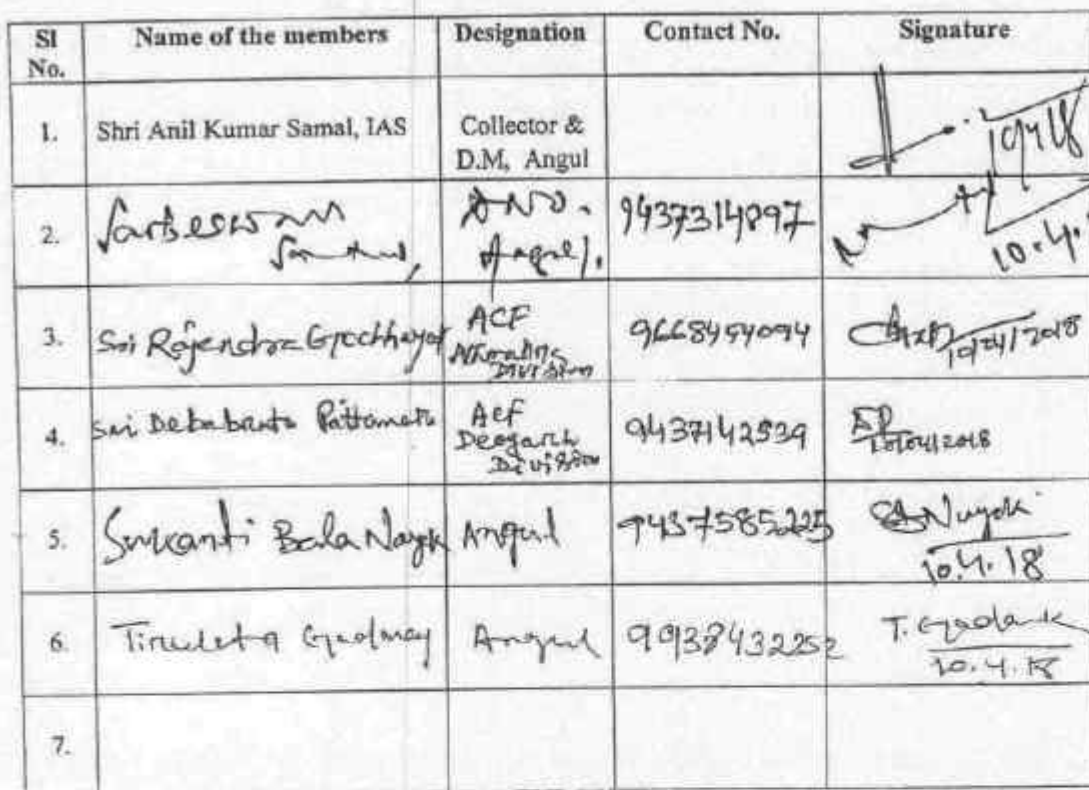 Sl No. Name of the members Designation Contact No. Signature
1. Shri Anil Kumar Samal, IAS Collector & D.M, Angul
2. Sarbeswar Angul. 9437314897 10.4.
3. Sri Rajendra Gochhayat ACF Division 9668454094 10/04/2018
4. Sri Debabrata ACF Deogarh Division 9437142539 10/04/2018
5. Sukanti Bala Nayak Angul 9437585225 Nayak 10.4.18
6. Angul 9938432252 T. 10.4.18
7.